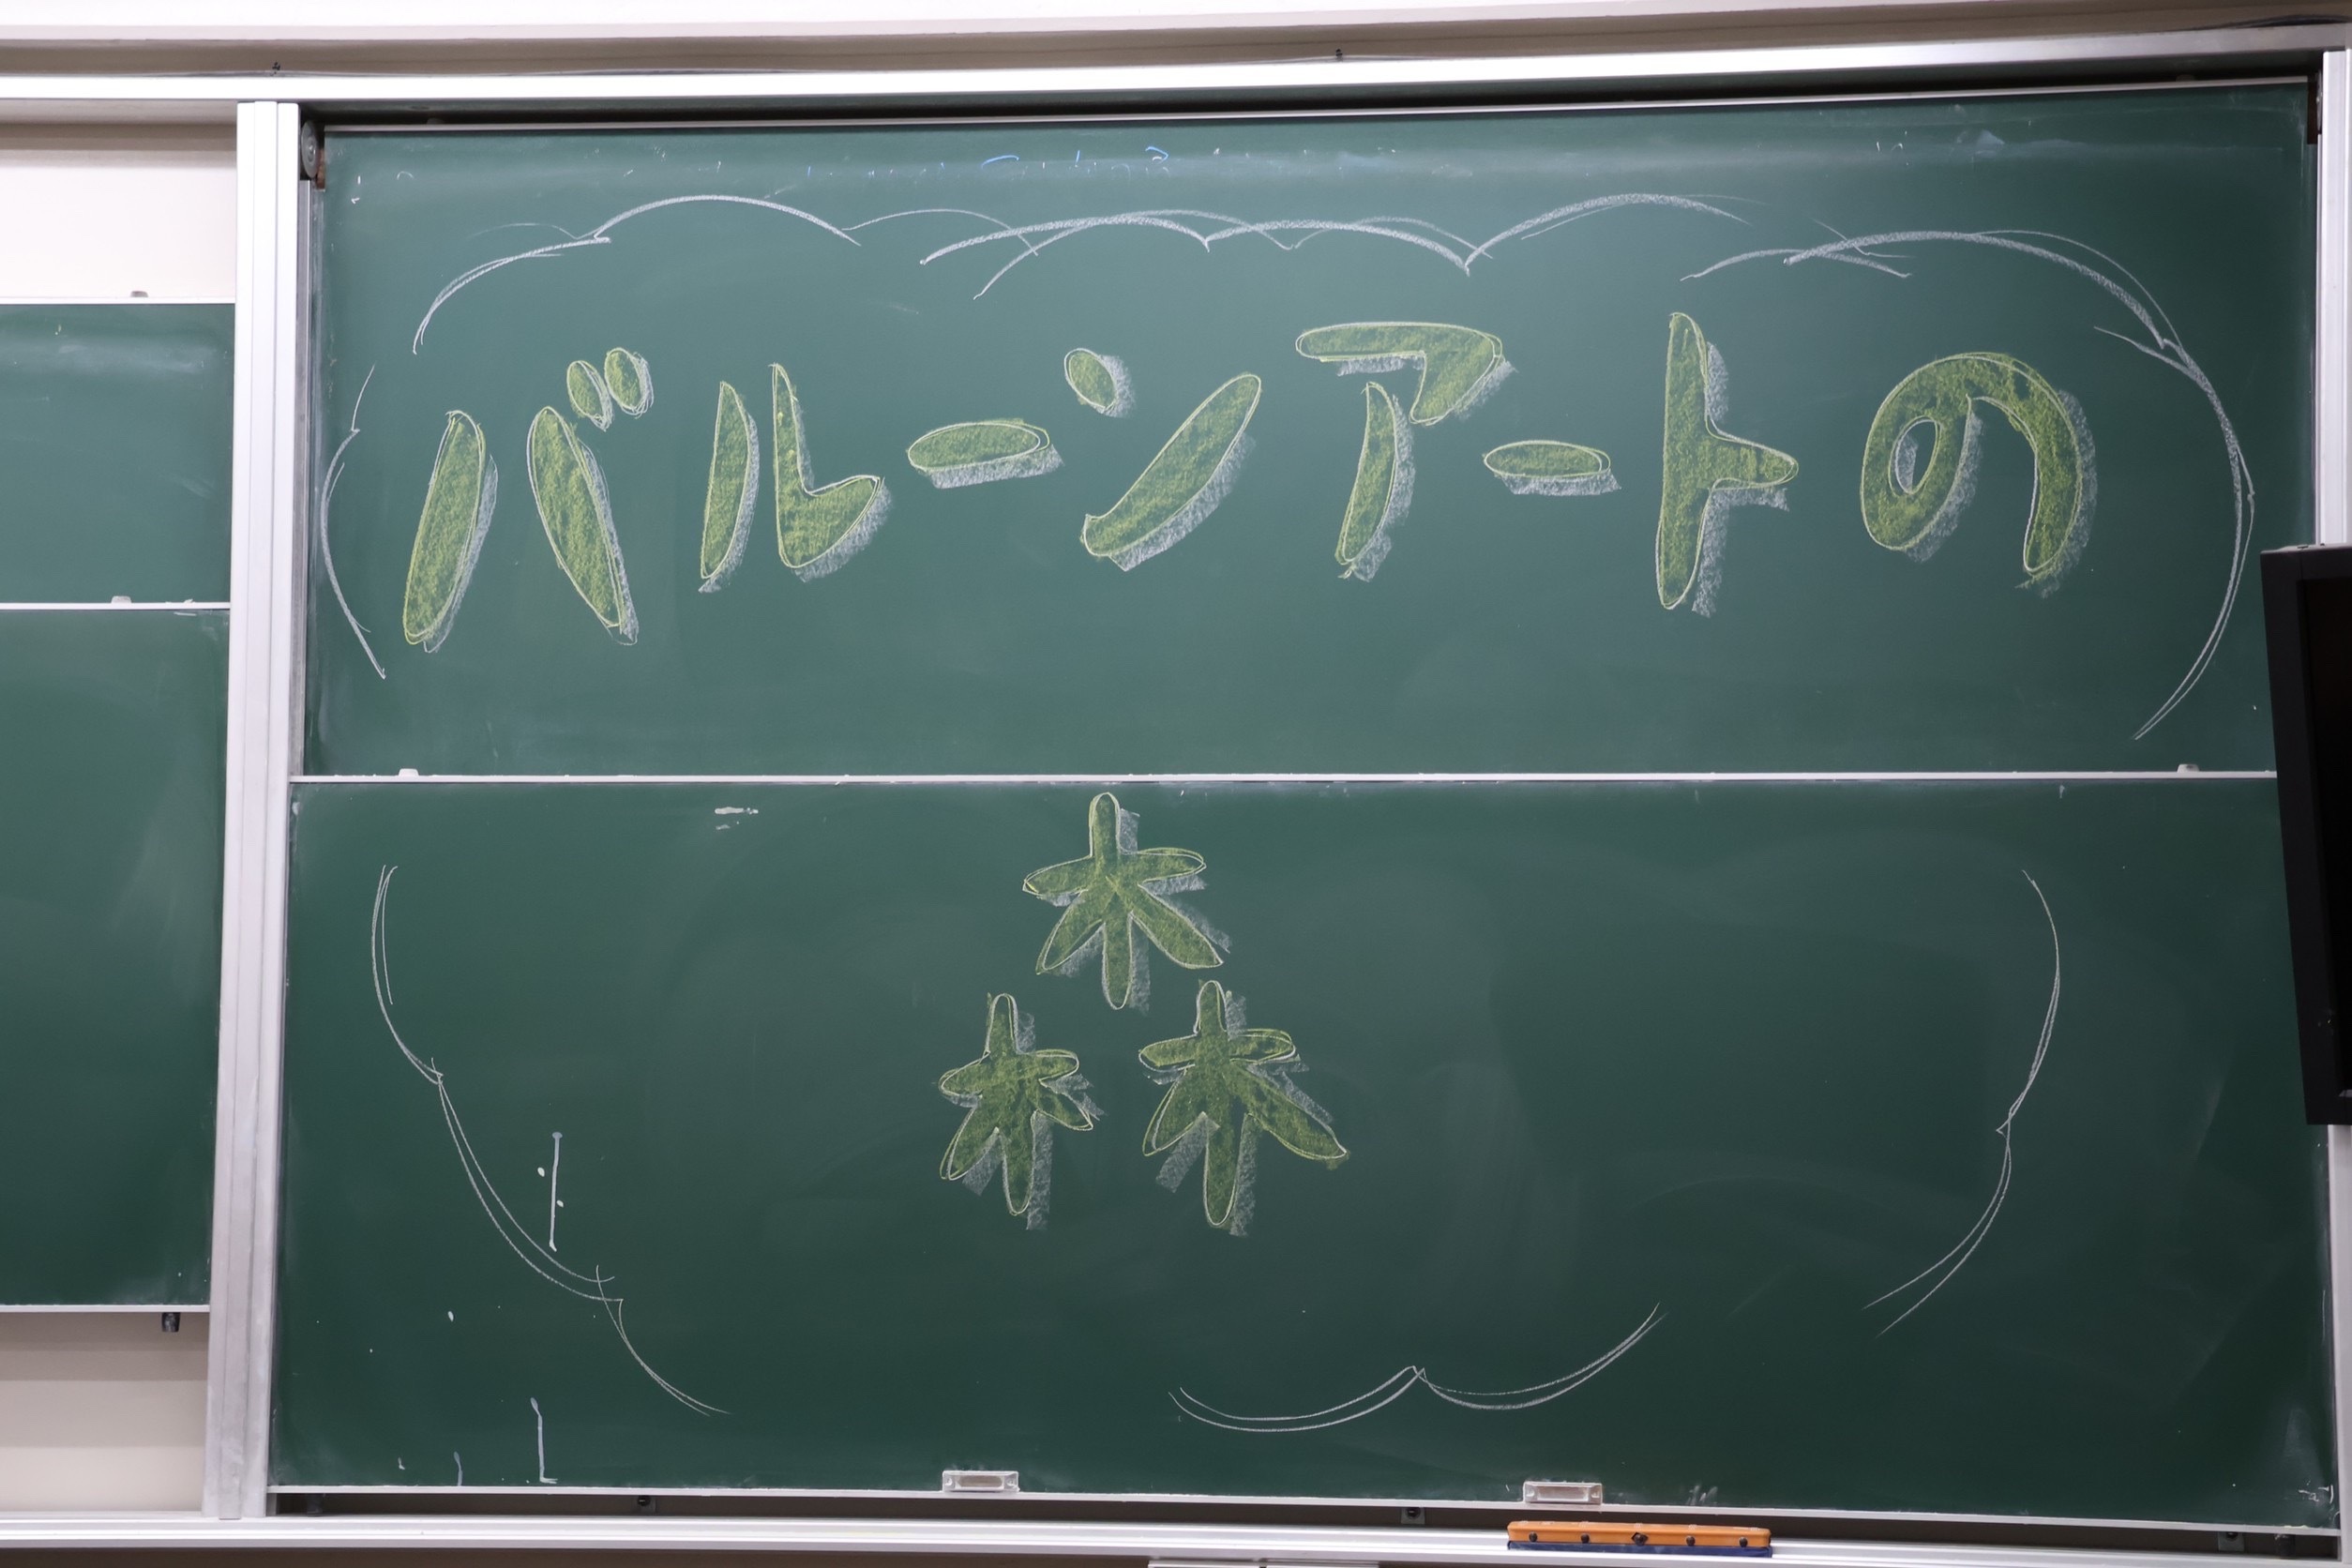 バルーンアートの
森